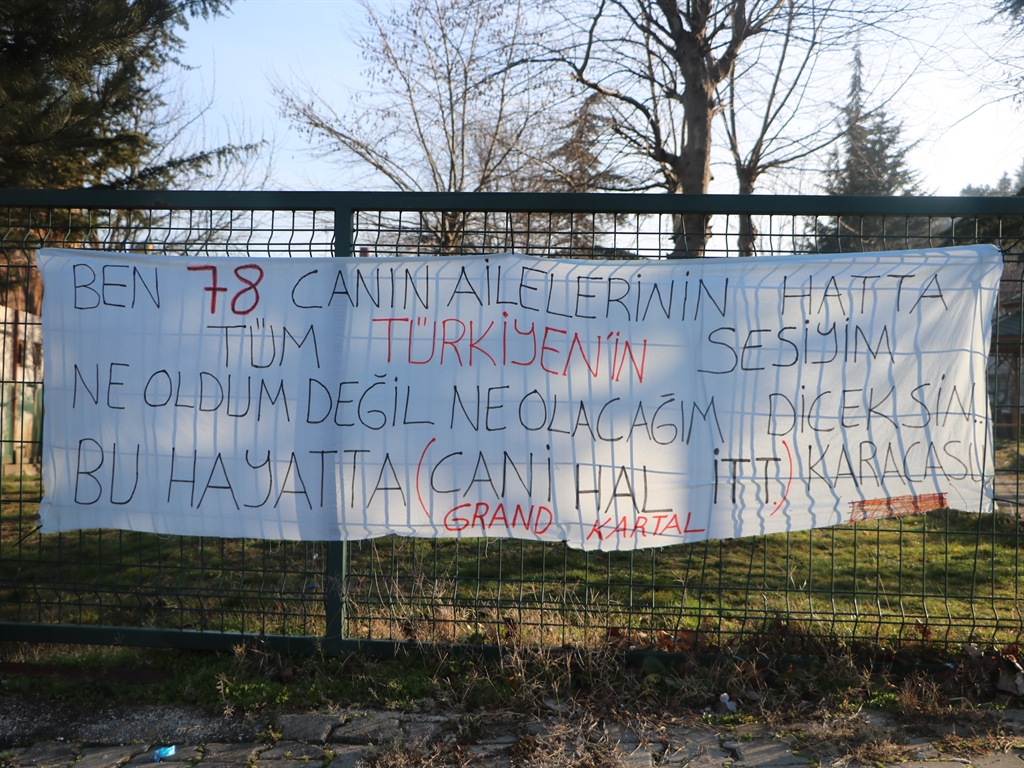 BEN 78 CANIN AİLELERİNİN HATTA
TÜM TÜRKİYEN'İN SESİYİM
NE OLDUM DEĞİL NE OLACAĞIM DİCEKSİN..
BU HAYATTA (CANİ HAL İTT.) KARACASU
GRAND KARTAL